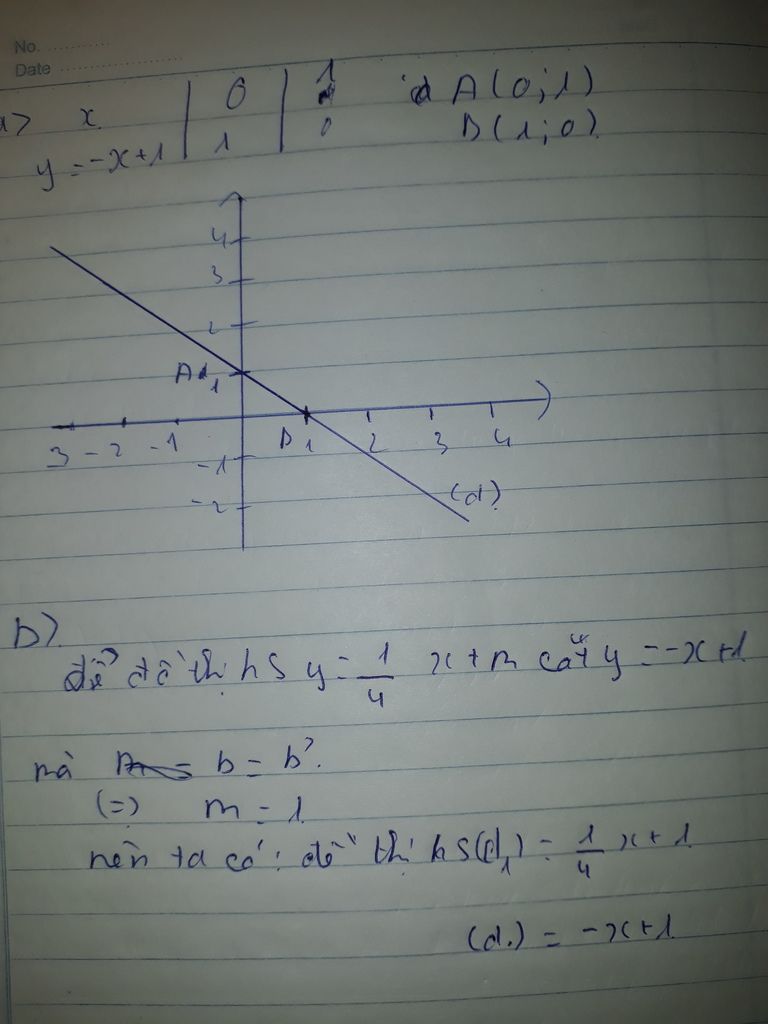 No. ............
Date ........................
a> x | 0 | 1 A(0;1)
y = -x+1 | 1 | 0 B(1;0)
4
3
2
A 1
3 -2 -1 B 1 2 3 4
-1
-2
(d)
b>
để đồ thị hs y = 1/4 x + m cắt y = -x+1
mà b = b'
(=) m = 1
nên ta có : đồ thị hs (d1) = 1/4 x + 1
(d.) = -x+1